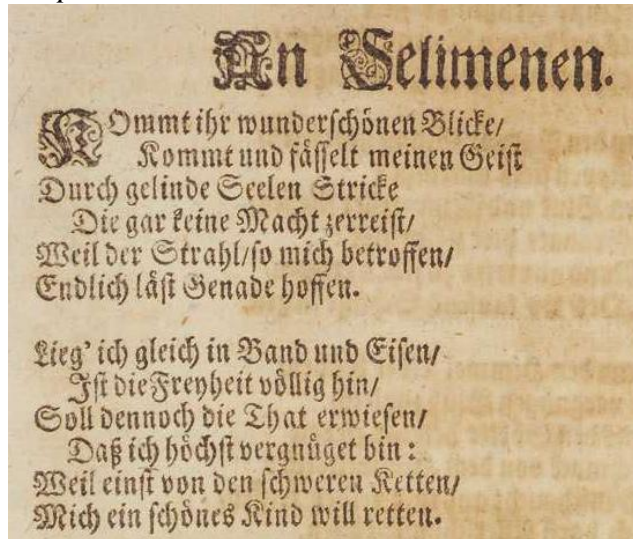 An Selimenen.
KOmmt ihr wunderschönen Blicke/
Kommt und fässelt meinen Geist
Durch gelinde Seelen Stricke
Die gar keine Macht zerreist/
Weil der Strahl/so mich betroffen/
Endlich läst Genade hoffen.
Lieg' ich gleich in Band und Eisen/
Ist die Freyheit völlig hin/
Soll dennoch die That erwiesen/
Daß ich höchst vergnüget bin:
Weil einst von den schweren Ketten/
Mich ein schönes Kind will retten.